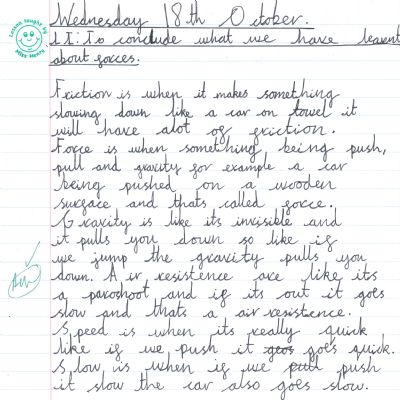 Lesson taught by Miss Henry
Wednesday 18th October.
L.I: To conclude what we have learnt
about forces.
Friction is when it makes something
slowing down like a car on towel it
will have alot of friction.
Force is when something being push,
pull and gravity for example a car
being pushed on a wooden
surface and thats called force.
Gravity is like its invisible and
it pulls you down so like if
we jump the gravity pulls you
down. Air resistence are like its
a parashoot and if its out it goes
slow and thats a air resistence.
Speed is when its really quick
like if we push it goes goes quick.
Slow is when if we pull push
it slow the car also goes slow.